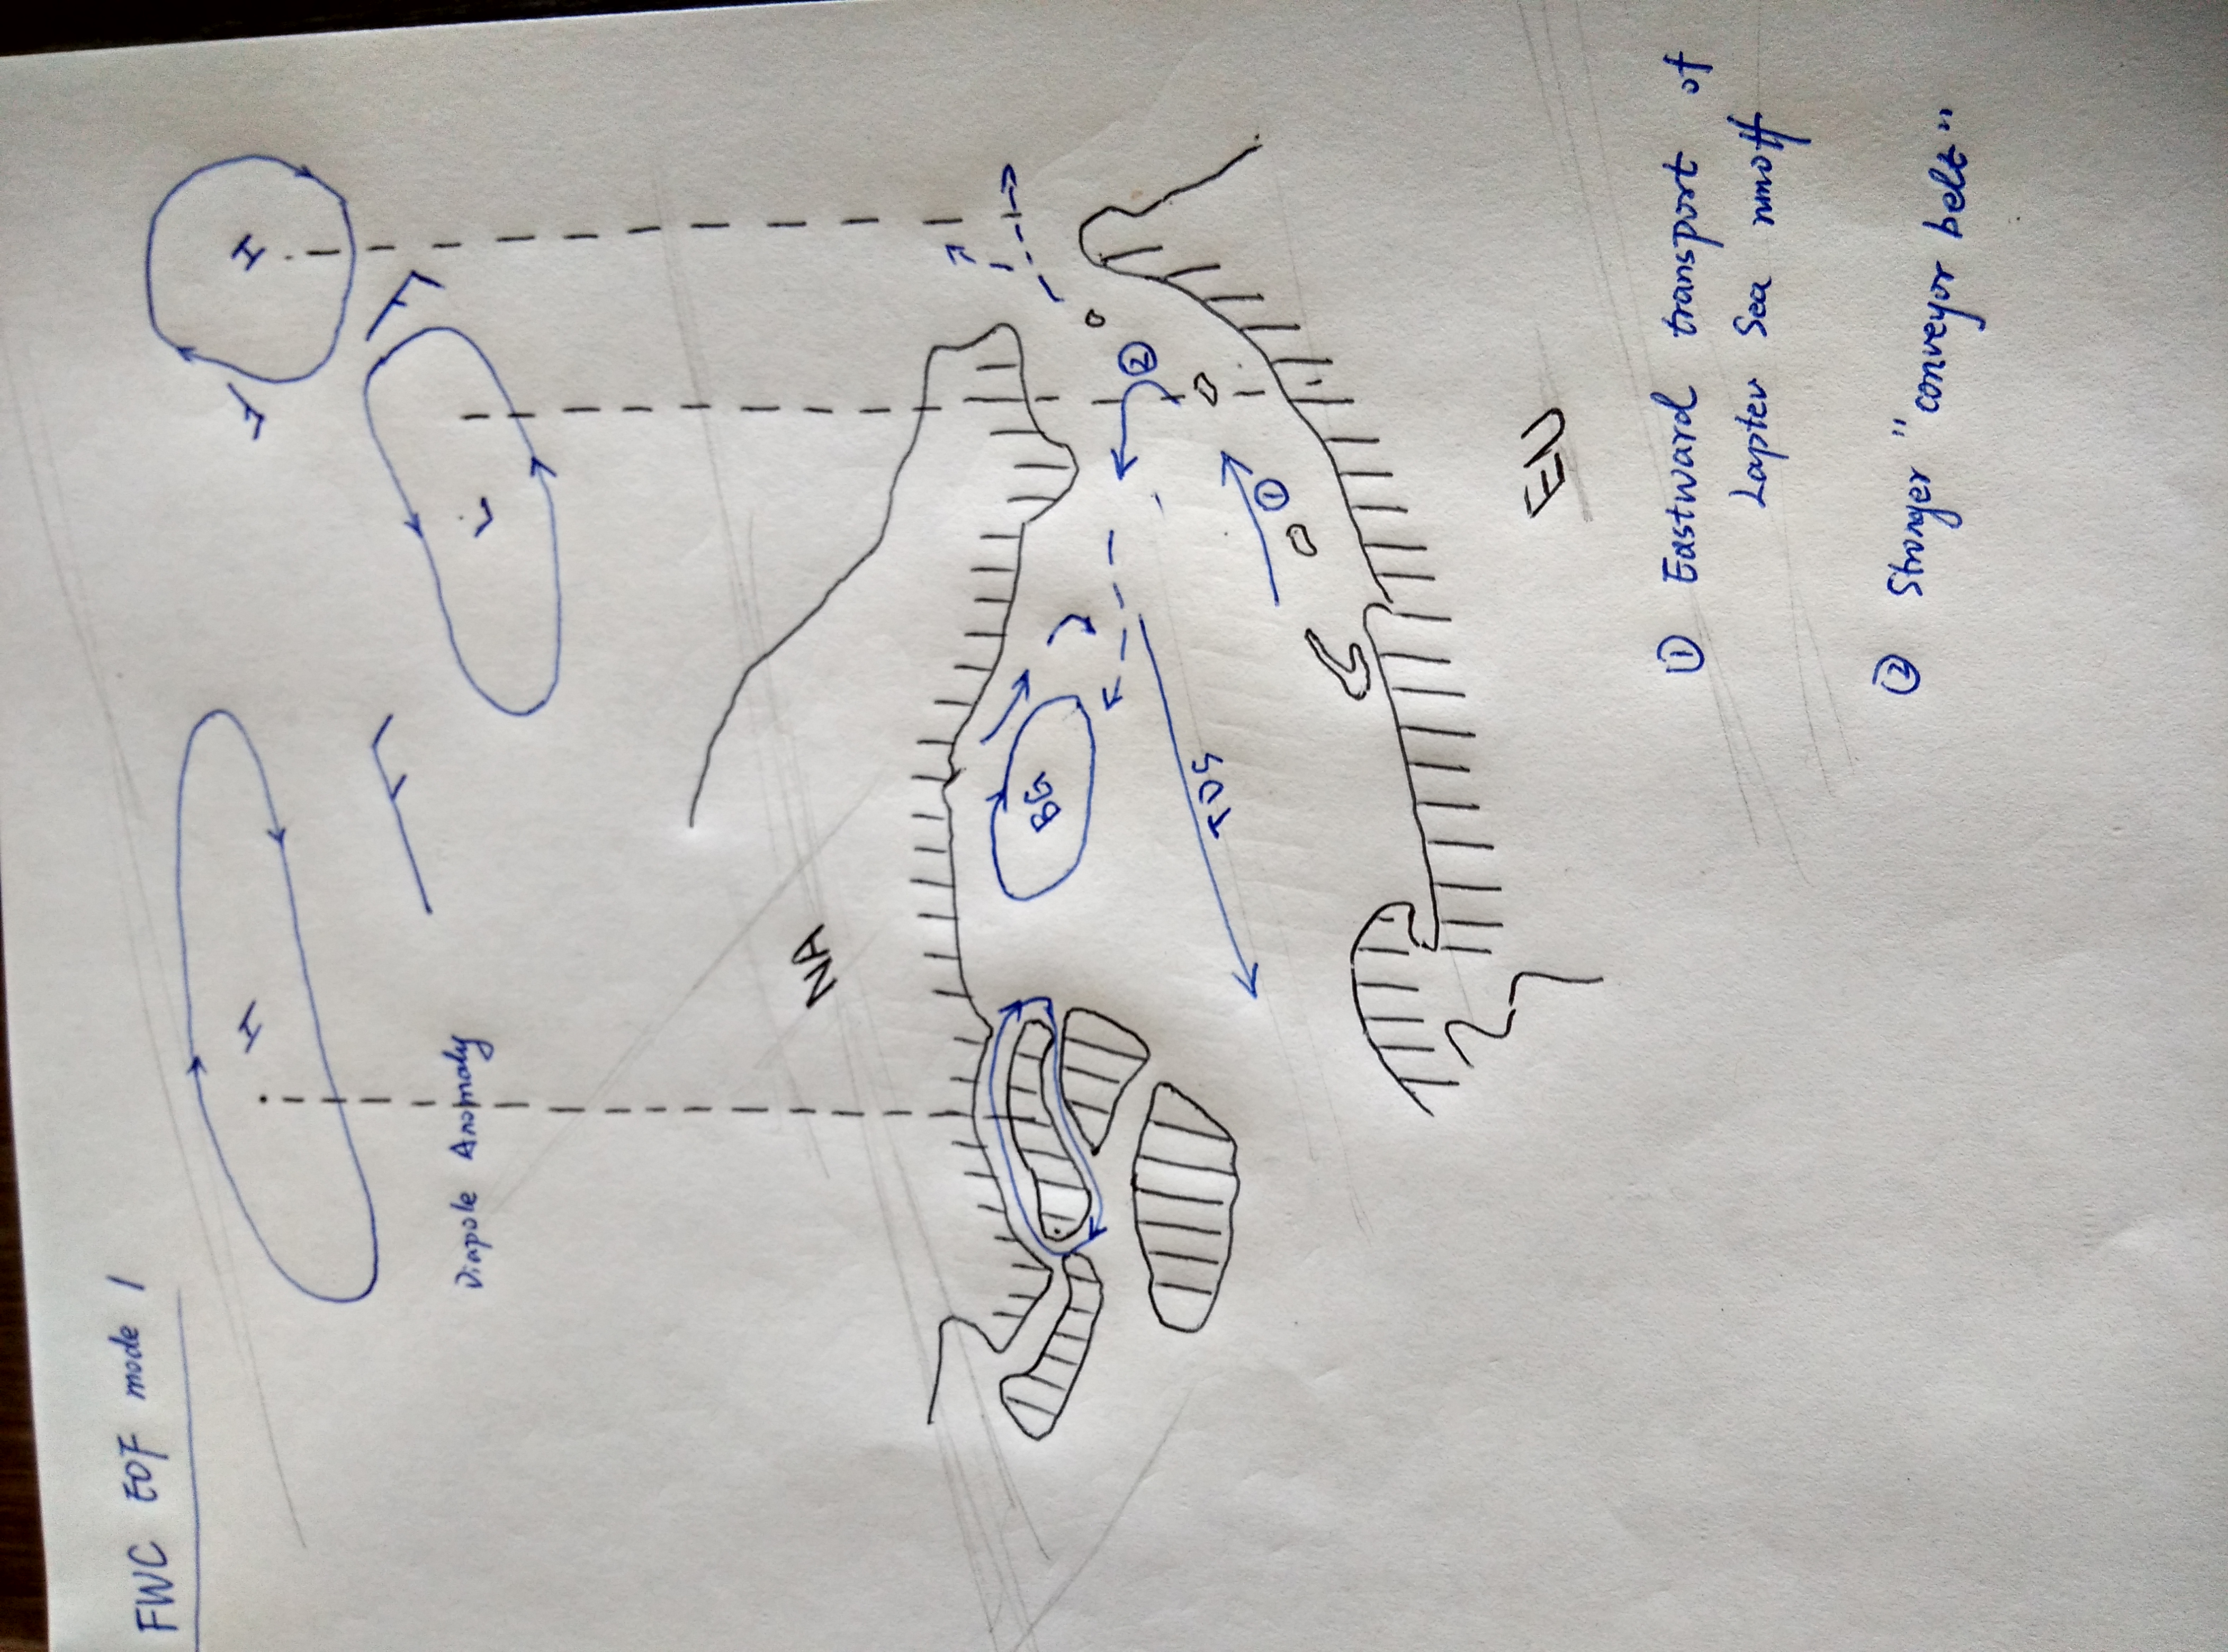 FWC EOF mode 1
H
L
H
Diapole Anomaly
NA
BG
TDS
②
①
EU
① Eastward transport of
Laptev Sea runoff
② Stronger "conveyor belt"